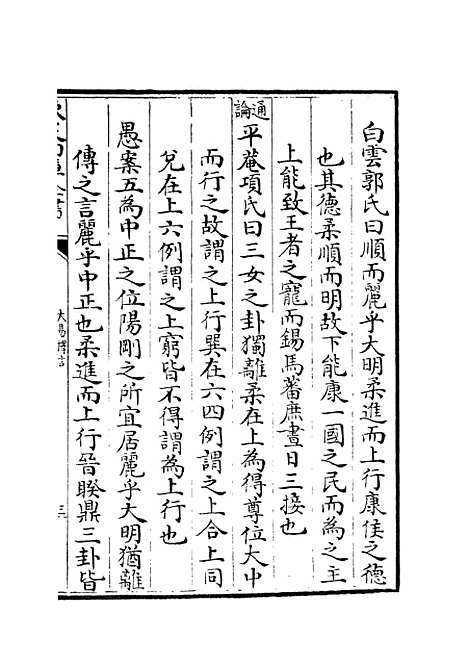 白雲郭氏曰順而麗乎大明柔進而上行康侯之德
也其德柔順而明故下能康一國之民而為之主
上能致王者之寵而錫馬蕃庶晝日三接也
通論
平菴項氏曰三女之卦獨離柔在上為得尊位大中
而行之故謂之上行巽在六四例謂之上合上同
兌在上六例謂之上窮皆不得謂為上行也
愚案五為中正之位陽剛之所宜居麗乎大明猶離
傳之言麗乎中正也柔進而上行晉睽鼎三卦皆
大易擇言
三